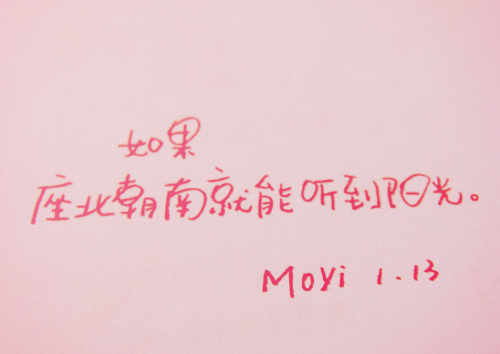 如果
座北朝南就能听到阳光。
Moyi 1.13